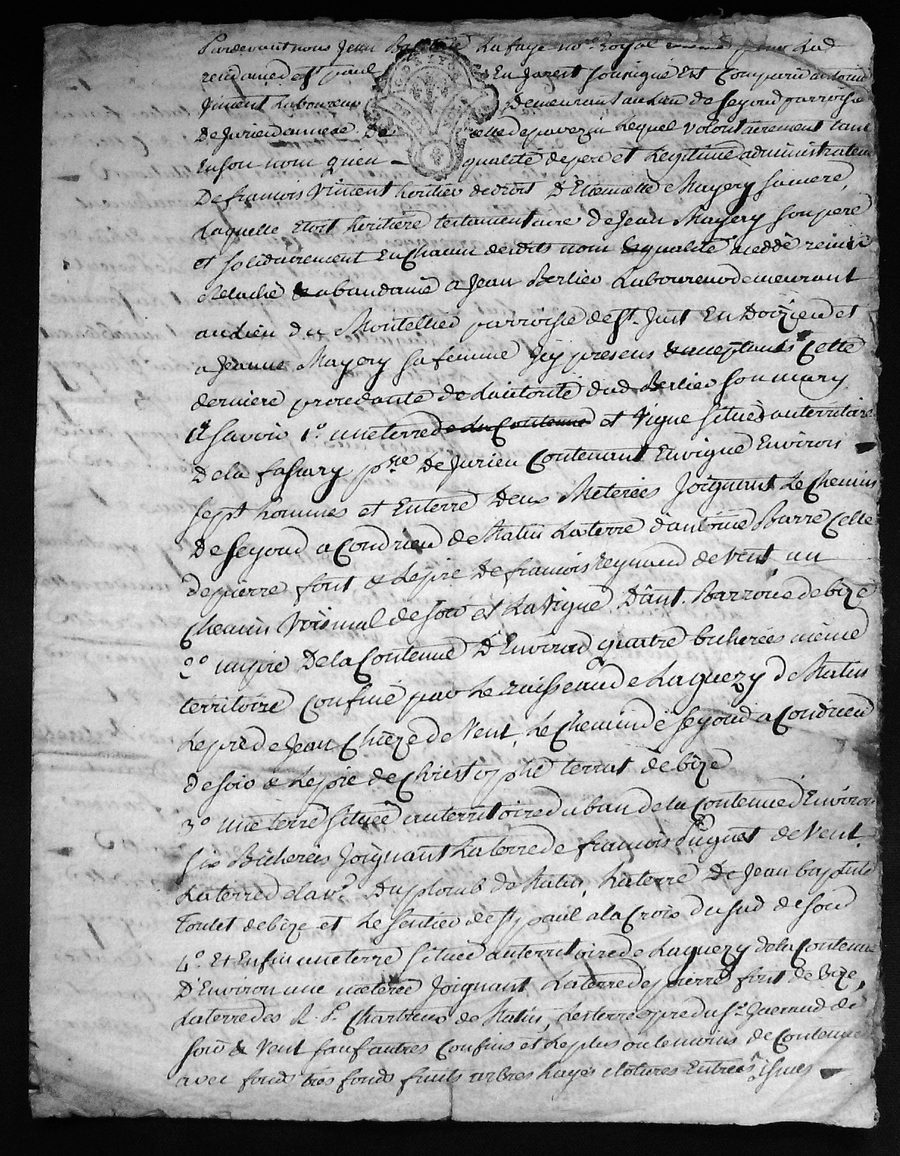 Pardevant nous Jean Baptiste Lafaye no.re Royal pour La d
rendance de St paul En Jarest soussigné Est Comparu antoine
Vincent Laboureur Demeurant au Lieu de Seyoud parroisse
De Jurieu annexe De celle de pavezin Lequel volontairement tant
En son nom qu'en qualité de pere et Legitime administrateur
De francois Vincent heritier de droit D'Etiennette Mayery sa mere,
Laquelle Etoit heritiere testamentaire de Jean Mayery son pere
et solidairement En Chacun desdits noms & qualité a cedé remis
Relaché & abandonné a Jean Berlier Laboureur demeurant
au Lieu du Montellier parroisse de St. Just En Doizieu et
a Jeanne Mayery sa femme Icy presens & acceptants Cette
derniere procedante de L'autorité dud Berlier son mary
Savoir 1o. une terre de la Contenue et Vigne située au territoire
De la fassary p.sse De Jurieu Contenant En vigne Environ
sept hommes et En terre Deux Meterées Joignant Le Chemin
De Seyoud a Condrieu de Matin La terre d'antoine Barre Celle
de pierre font & Le pre De francois Reynaud de vent, un
Chemin Voisinal de soir et La Vigne D'ant. Barroüe de bize
2o un pre De la Contenue D'Environ quatre bicherées même
territoire Confiné par Le ruisseau de Laguezy de Matin
Le pre de Jean Chieze de Vent, Le Chemin de Seyoud a Condrieu
de soir & Le pre de Christophe terrat de bize
3o une terre Située au territoire du ban de la Contenue d'Environ
Six Bicherées Joignant La terre de francois huguet de Vent
La terre de la v.e Duplomb de Matin, La terre De Jean baptiste
toulet de bize et Le Sentier de St paul a la Croix du sud de soir
4o. Et Enfin une terre Située au territoire de Laguezy de la Contenue
D'Environ une meterée Joignant La terre de pierre font de bize,
La terre des R. P. Chartreux de Matin, Les terre & pre du Sr. Jaenaud de
soir & Vent sauf autres Confins et Le plus ou le moins de Contenue
avec fonds tres fonds fruits arbres hayes clotures Entrées issues